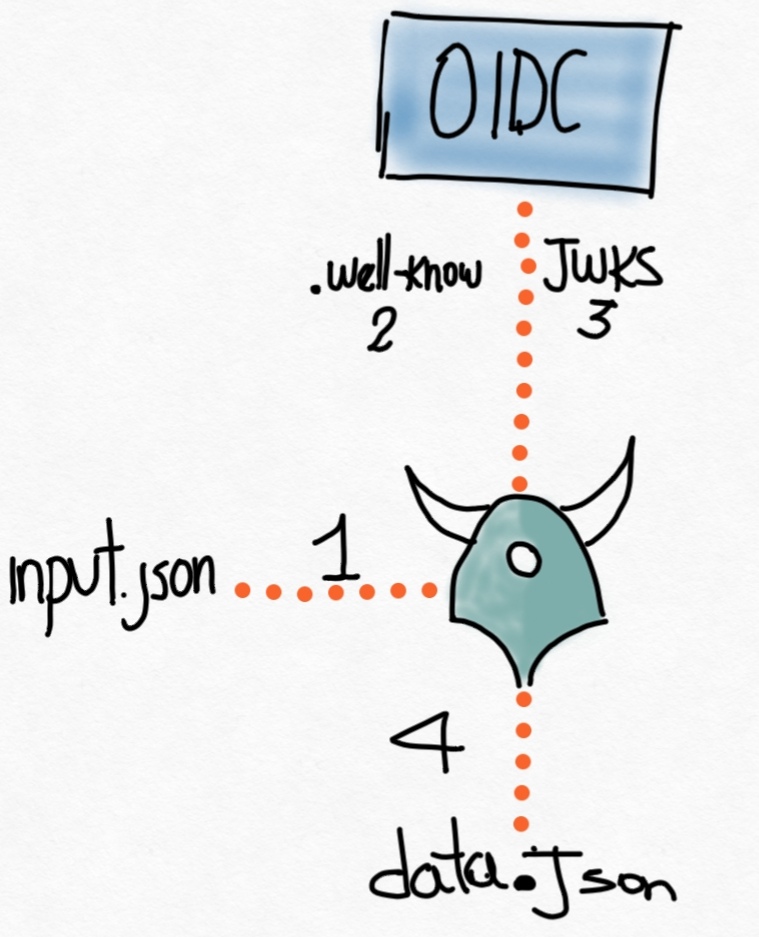 OIDC
.well-know JWKS
2 3
input.json 1
4
data.json